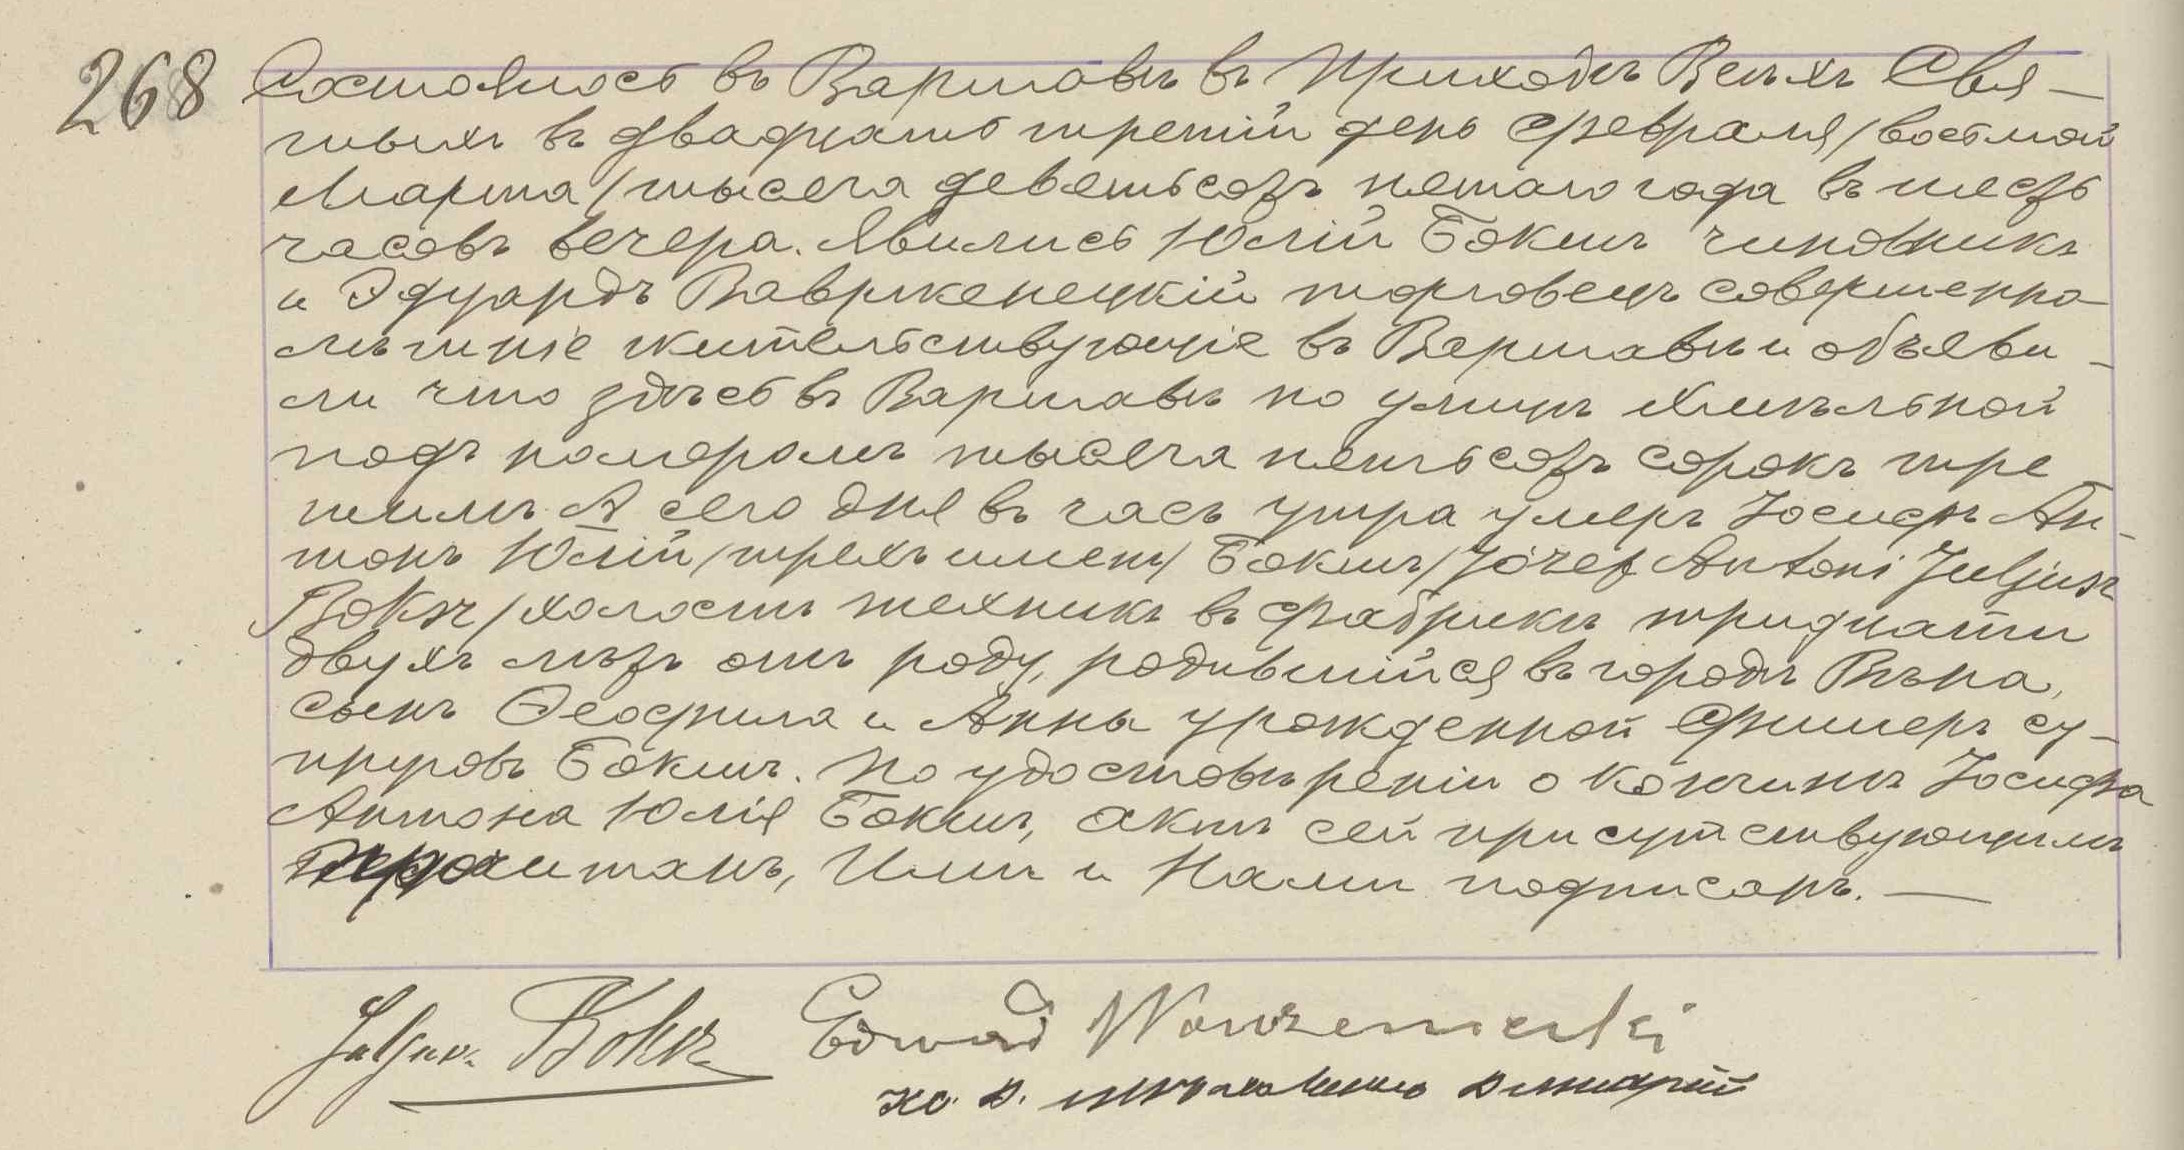 268
Состоялось въ Варшавѣ въ Приходѣ Всѣхъ Свя-
тыхъ въ двадцать третій день Февраля /восьмой
Марта/ тысяча девятьсотъ пятаго года въ шесть
часовъ вечера. Явились Юлій Бокшъ чиновникъ
и Эдуардъ Ваврженецкій торговецъ совершенно-
лѣтніе жительствующіе въ Варшавѣ и объяви-
ли что здѣсь въ Варшавѣ по улицѣ Хмѣльной
подъ номеромъ тысяча пятьсотъ сорокъ тре-
тьимъ А сего дня въ часъ утра умеръ Іосифъ Ан-
тонъ Юлій /трехъ именъ/ Бокшъ /Józef Antoni Juljusz
Boksz/ холостъ техникъ въ фабрикѣ тридцати
двухъ лѣтъ отъ роду, родившійся въ городѣ Вѣна,
сынъ Ѳеофила и Анны урожденной Фишеръ су-
пруговъ Бокшъ. По удостовѣреніи о кончинѣ Іосифа
Антона Юлія Бокшъ, актъ сей присутствующимъ
прочитанъ, Ими и Нами подписанъ. —
Juljusz Boksz Edward Wawrzeniecki